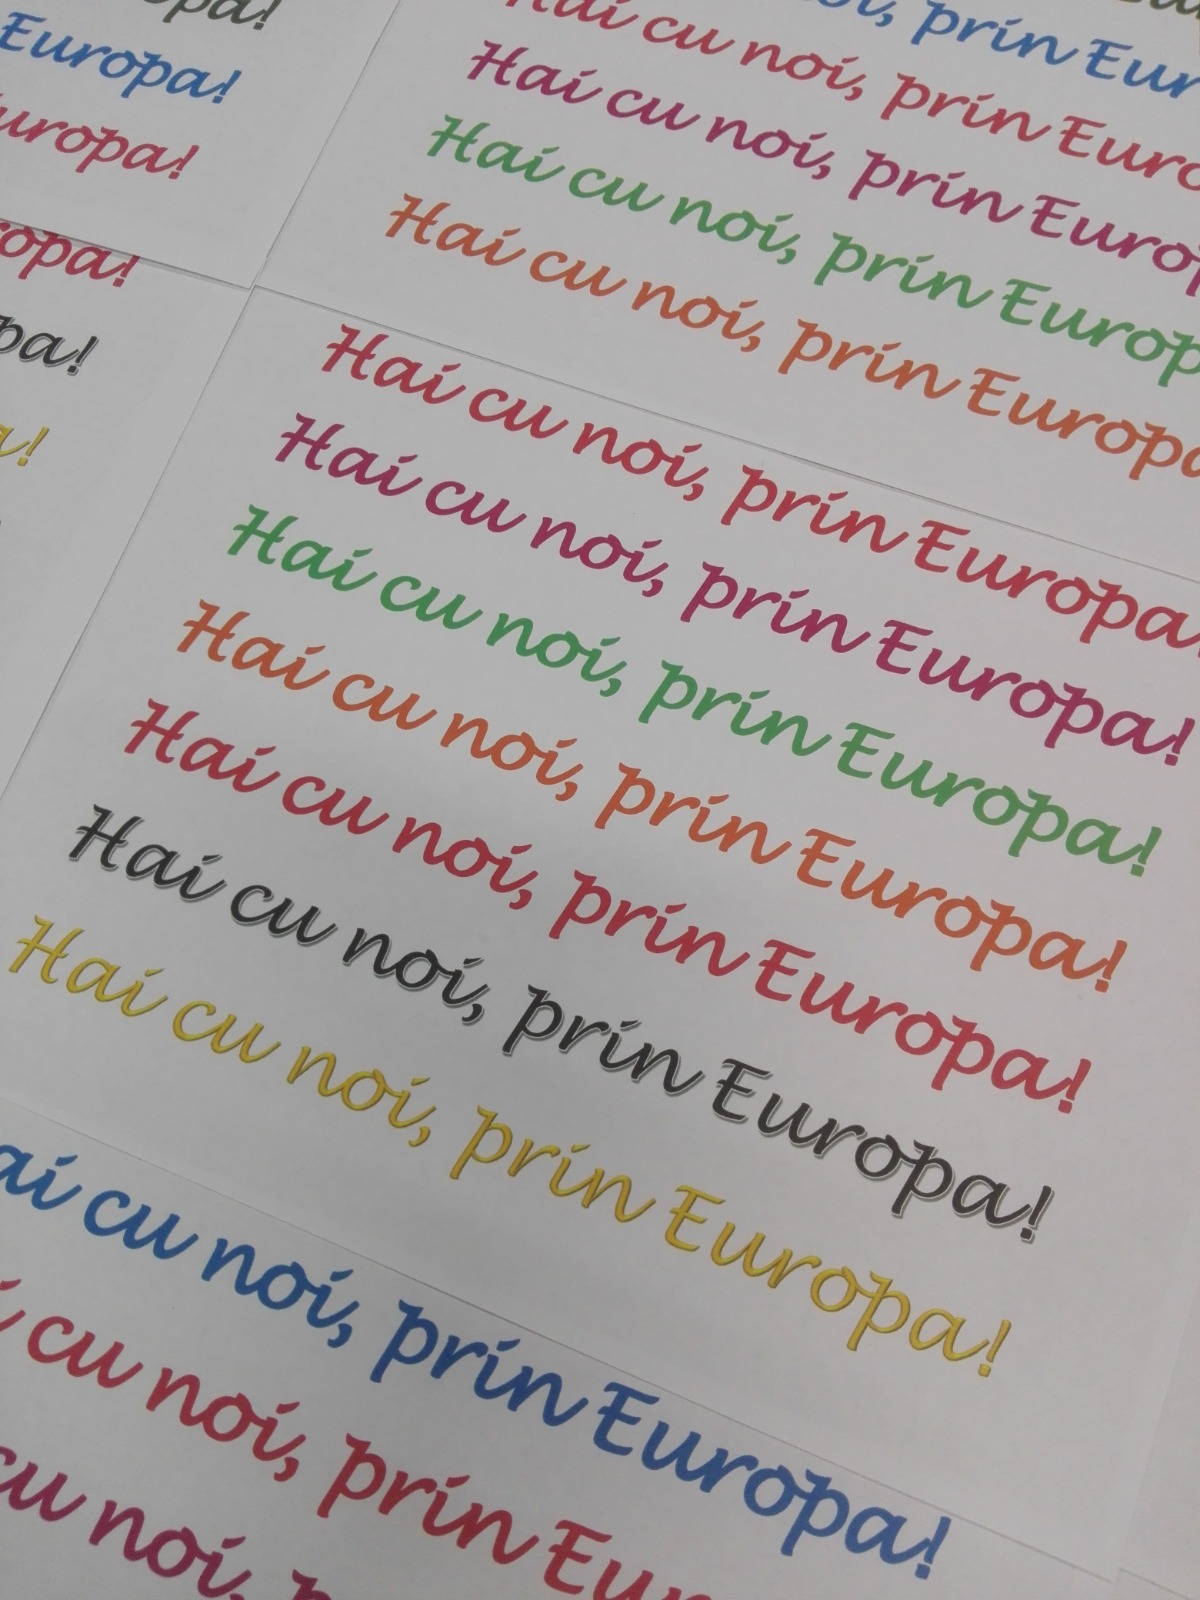 Europa!
Europa!
Hai cu noi, prin
Hai cu noi, prin
Hai cu noi, prin
Hai cu noi, prin Europa
Hai cu noi, prin Europa!
Hai cu noi, prin Europa!
Hai cu noi, prin Europa!
Hai cu noi, prin Europa!
Hai cu noi, prin Europa!
Hai cu noi, prin Europa!
Hai cu noi, prin Europa!
cu noi, prin Europa!
cu noi, prin
cu noi,